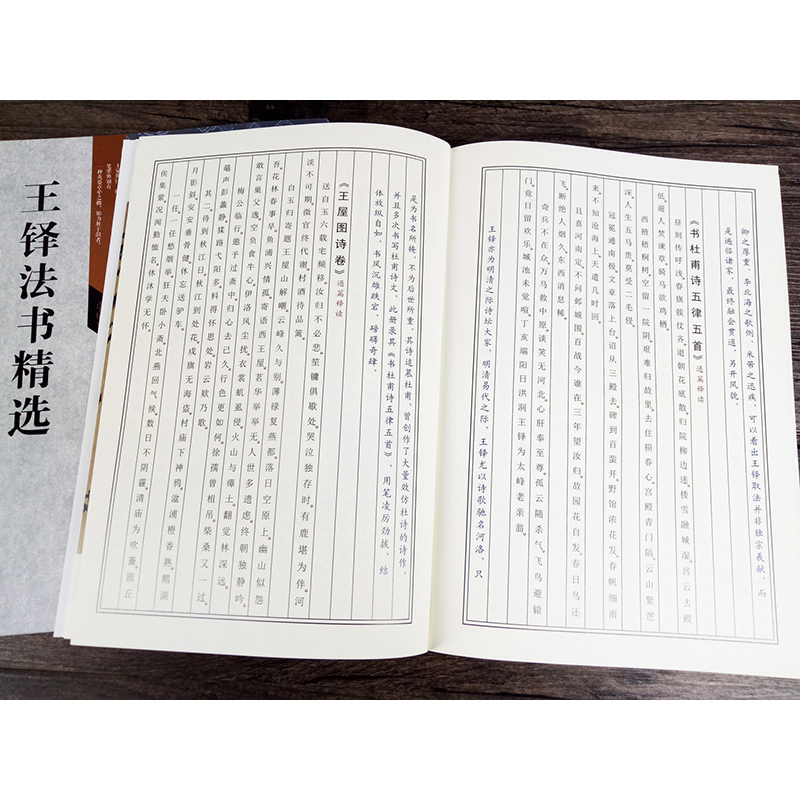 卿之厚重、李北海之欹侧、米芾之迅疾,可以看出王铎取法并非独宗羲献,而
是遍临诸家、最终融会贯通、另开风貌。
《书杜甫诗五律五首》通篇释读
昼刻传呼浅。春旗簇仗齐。退朝花底散。归院柳边迷。楼雪融城湿。宫云去殿
低。避人焚谏草。骑马欲鸡栖。
西掖梧桐树。空留一院阴。艰难归故里。去住损春心。宫殿青门隔。云山紫逻
深。人生五马贵。莫受二毛侵。
冠冕通南极。文章落上台。诏从三殿去。碑到百蛮开。野馆浓花发。春帆细雨
来。不知沧海上。天遣几时回。
且喜河南定。不问邺城围。百战今谁在。三年望汝归。故园花自发。春日鸟还
飞。断绝人烟久。东西消息稀。
奇兵不在众。万马救中原。谈笑无河北。心肝奉至尊。孤云随杀气。飞鸟避辕
门。竟日留欢乐。城池未觉喧。丁亥端阳日洪洞王铎为太峰老亲翁。
王铎亦为明清之际诗坛大家,明清易代之际,王铎尤以诗歌驰名河洛,只
是为书名所掩,不为后世所重,其诗追慕杜甫,曾创作了大量效仿杜诗的诗作,
并且多次书写杜甫诗文,此册录其《书杜甫诗五律五首》,用笔凌厉劲拔,结
体放纵自如,书风沉雄跌宕、磅礴奇肆。
《王屋图诗卷》通篇释读
送自玉六载老频移。汝归不必悲。笙镛俱歇处。哭泣独存时。有鹿堪为伴。河
淡不可期。微官终代谢。村酒待品篱。
白玉归寄题王屋山解嘲。云峰久与别。薄禄复燕都。落日空原上。幽山似怨
吾。花林春事早。鱼浦兴情孤。寄语西王屋。茗华举举无。人世多遗虑。终朝独静吟。
敢言巢父逸。空负食牛心。伊洛风尘扰。衣裳虮虱侵。火山与瘴土。翻觉林深远。
梅公临行。邀予过斋中。归心去已久。行色更如何。徐孺曾相吊。柴桑又一过。
黾声彭蠡静。猱路弋阳多。料得怀思处。岩云欸乃歌。
其二。待到秋江日。秋江到处花。戍旗无海盗。村庙下神鸦。湓浦橙香熟。鹅湖
月影斜。安安垂骨健。休忘送驴车。
一任。一任愁烟举。狂夫卧小斋。北燕回气候。数日不阴霾。清庙为吹龠。圜丘
俟集紫。况闻勤恤名。休沐学无怀。
王铎法书精选